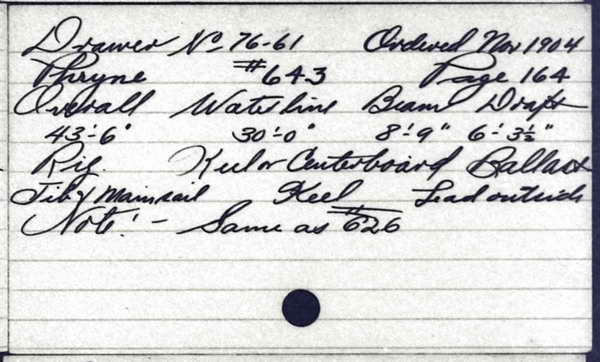 Drawer No 76-61 Ordered Nov 1904
Phryne #643 Page 164
Overall Waterline Beam Draft
43'-6" 30'-0" 8'-9" 6'-3½"
Rig. Keel or Centerboard Ballast
Jib & Mainsail Keel Lead outside
Note! - Same as #626